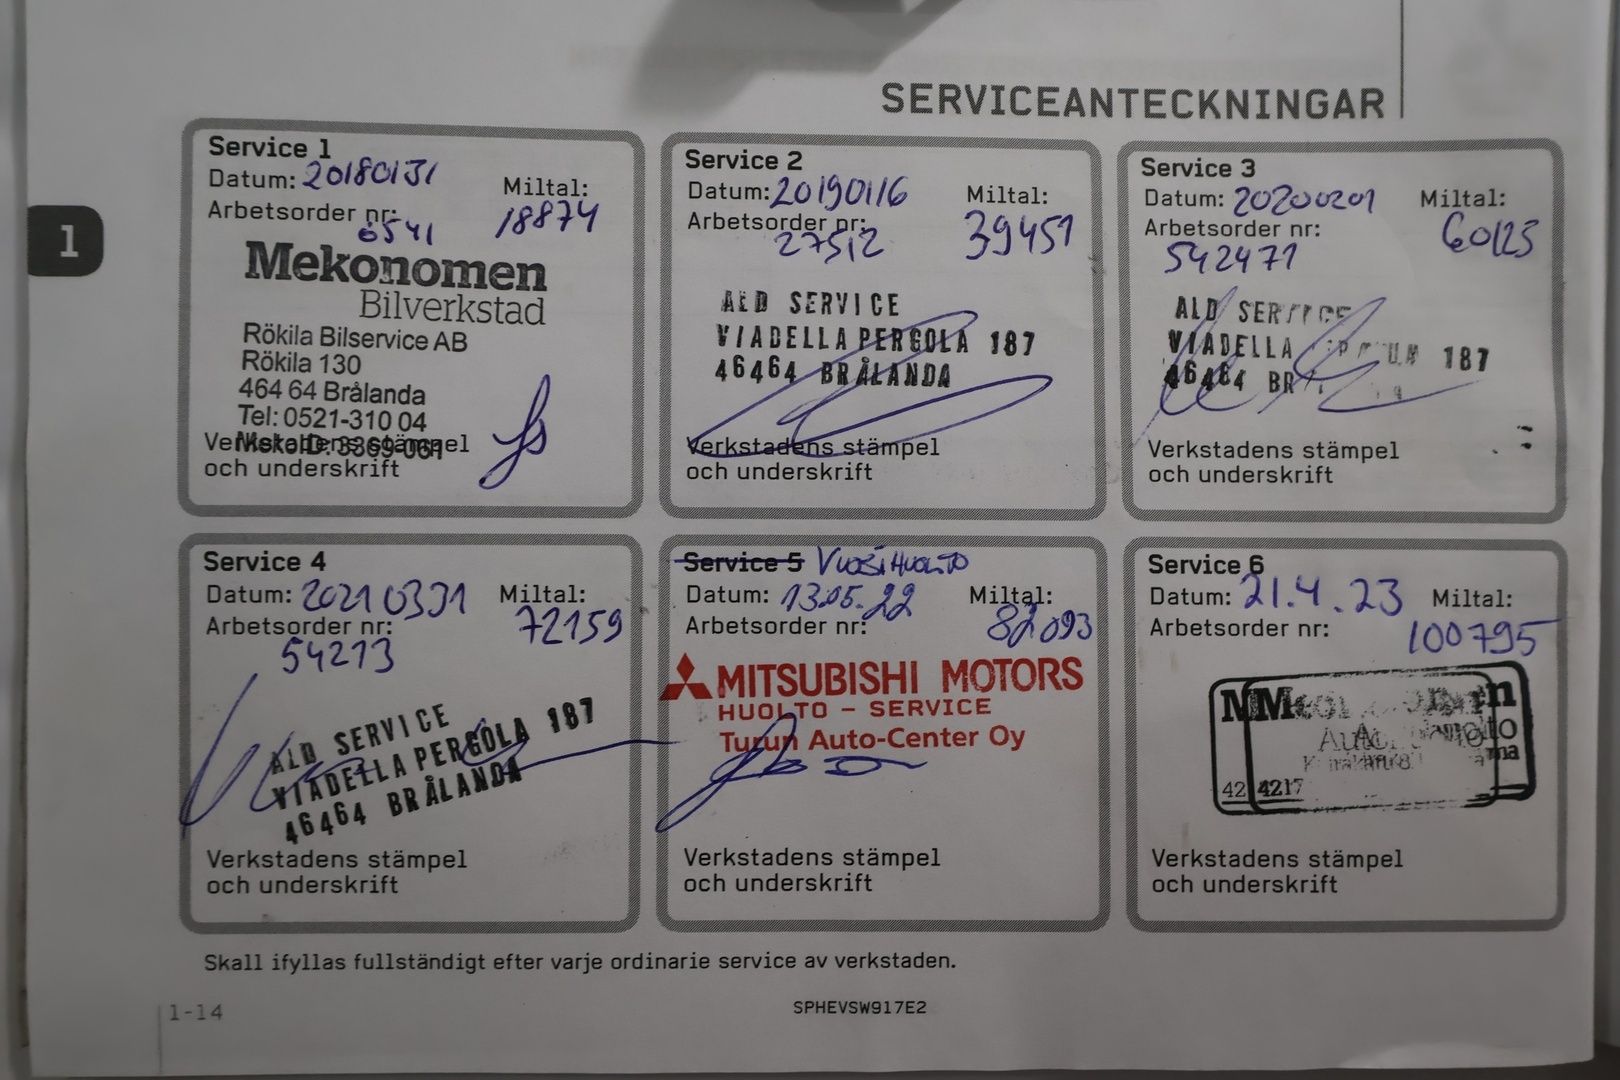 SERVICEANTECKNINGAR
1
Service 1
Datum: 20180131
Miltal:
18874
Arbetsorder nr:
6541
Mekonomen
Bilverkstad
Rökila Bilservice AB
Rökila 130
464 64 Brålanda
Tel: 0521-310 04
Verkstadens stämpel
och underskrift
Service 2
Datum: 20190116
Miltal:
39451
Arbetsorder nr:
27512
ALD SERVICE
VIADELLA PERGOLA 187
46464 BRÅLANDA
Verkstadens stämpel
och underskrift
Service 3
Datum: 20200201
Miltal:
60125
Arbetsorder nr:
542471
ALD SERVICE
VIADELLA 187
46464
Verkstadens stämpel
och underskrift
Service 4
Datum: 20210331
Miltal:
72159
Arbetsorder nr:
54213
ALD SERVICE
VIADELLA PERGOLA 187
46464 BRÅLANDA
Verkstadens stämpel
och underskrift
Service 5 VUOSIHUOLTO
Datum: 13.05.22
Miltal:
82093
Arbetsorder nr:
MITSUBISHI MOTORS
HUOLTO – SERVICE
Turun Auto-Center Oy
Verkstadens stämpel
och underskrift
Service 6
Datum: 21.4.23
Miltal:
100795
Arbetsorder nr:
4217
Verkstadens stämpel
och underskrift
Skall ifyllas fullständigt efter varje ordinarie service av verkstaden.
1-14
SPHEVSW917E2